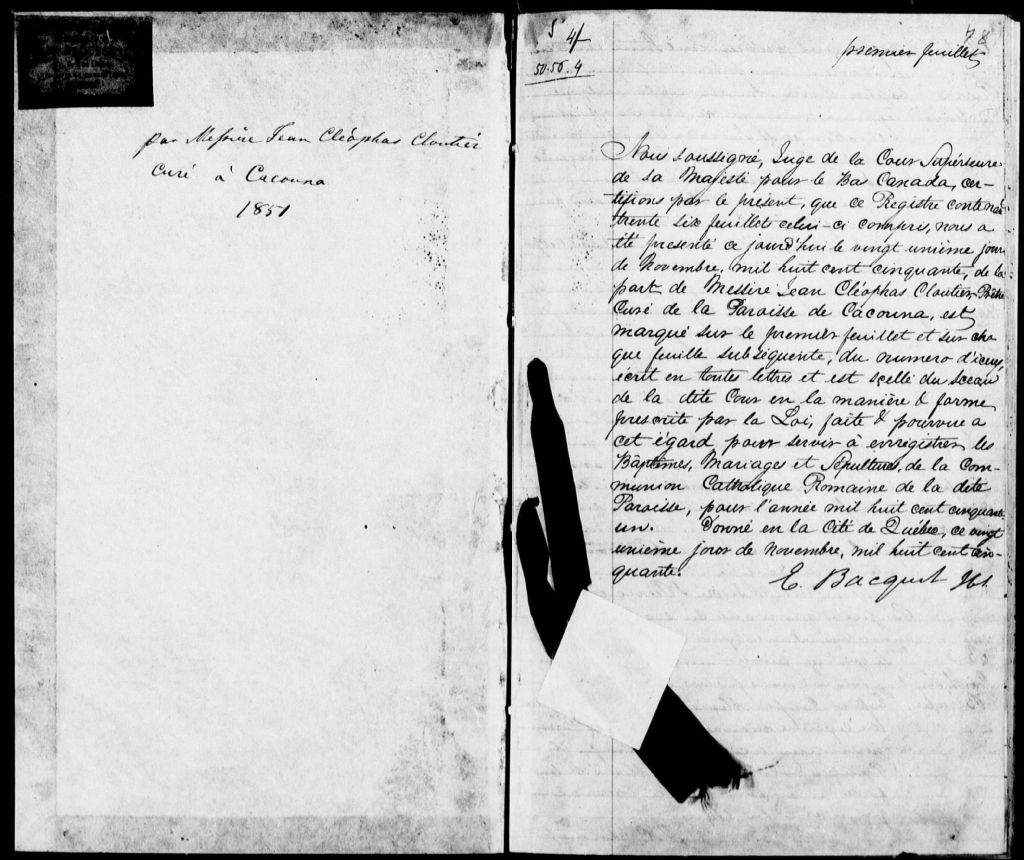 par Messire Jean Cléophas Cloutier
Curé à Cacouna
1851
5 4
50.56.4
premier feuillet
Nous soussigné, Juge de la Cour Supérieure
de sa Majesté pour le Bas Canada, cer-
tifions par le présent, que ce Registre contenant
trente six feuillets celui-ci compris, nous a
été presenté ce jourd'hui le vingt unième jour
de Novembre, mil huit cent cinquante, de la
part de Messire Jean Cléophas Cloutier Ptre
Curé de la Paroisse de Cacouna, est
marqué sur le premier feuillet et sur cha
que feuille subséquente, du numero d'iceux,
écrit en toutes lettres et est scellé du sceau
de la dite Cour en la manière & forme
prescrite par la Loi, faite & pourvue a
cet égard pour servir à enregistrer les
Bâptêmes, Mariages et Sépultures, de la Com-
munion Catholique Romaine de la dite
Paroisse, pour l'année mil huit cent cinquante
un. Donné en la Cité de Québec, ce vingt
unième jour de Novembre, mil huit cent cin-
quante.
E. Bacquet